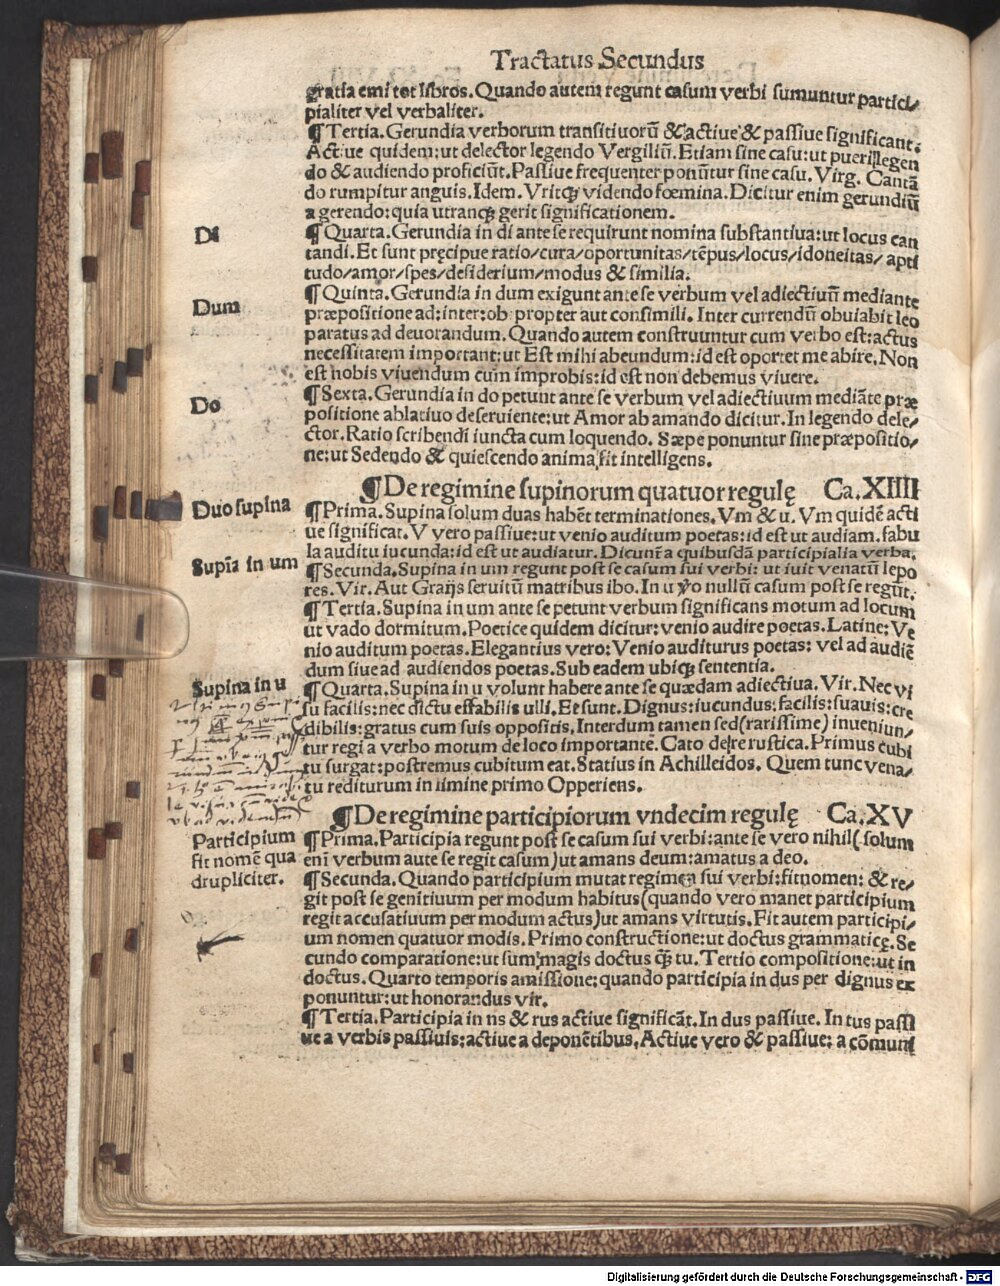 Tractatus Secundus
gratia emi tot libros. Quando autem regunt casum verbi sumuntur partici/
pialiter vel verbaliter.
¶ Tertia. Gerundia verborum transitiuorū & actiue & passiue significant.
Actiue quidem: ut delector legendo Vergiliū. Etiam sine casu: ut pueri legen
do & audiendo proficiūt. Passiue frequenter ponūtur sine casu. Virg. Cantā
do rumpitur anguis. Idem. Vritqꝫ videndo fœmina. Dicitur enim gerundiū
a gerendo: quia utranqꝫ gerit significationem.
Di
¶ Quarta. Gerundia in di ante se requirunt nomina substantiua: ut locus can
tandi. Et sunt pręcipue ratio/cura/oportunitas/tēpus/locus/idoneitas/apti
tudo/amor/spes/desiderium/modus & similia.
Dum
¶ Quinta. Gerundia in dum exigunt ante se verbum vel adiectiuū mediante
præpositione ad: inter: ob propter aut consimili. Inter currendū obuiabit leo
paratus ad deuorandum. Quando autem construuntur cum verbo est: actus
necessitatem important: ut Est mihi abeundum: id est oportet me abire. Non
est nobis viuendum cum improbis: id est non debemus viuere.
Do
¶ Sexta. Gerundia in do petunt ante se verbum vel adiectiuum mediāte præ
positione ablatiuo deseruiente: ut Amor ab amando dicitur. In legendo dele/
ctor. Ratio scribendi iuncta cum loquendo. Sæpe ponuntur sine præpositio/
ne: ut Sedendo & quiescendo anima fit intelligens.
¶ De regimine supinorum quatuor regulę Ca. XIIII
Duo supina
¶ Prima. Supina solum duas habēt terminationes. Vm & u. Vm quidē acti
ue significat. V vero passiue: ut venio auditum poetas: id est ut audiam. fabu
la auditu iucunda: id est ut audiatur. Dicunt̃ a quibusdā participialia verba.
Supīa in um
¶ Secunda. Supina in um regunt post se casum sui verbi: ut iuit venatū lepo
res. Vir. Aut Graijs seruitū matribus ibo. In u ỿo nullū casum post se regūt.
¶ Tertia. Supina in um ante se petunt verbum significans motum ad locum
ut vado dormitum. Poetice quidem dicitur: venio audire poetas. Latine: Ve
nio auditum poetas. Elegantius vero: Venio auditurus poetas: vel ad audiē
dum siue ad audiendos poetas. Sub eadem ubiqꝫ sententia.
Supina in u
¶ Quarta. Supina in u volunt habere ante se quædam adiectiua. Vir. Nec vi
su facilis: nec dictu effabilis ulli. Et sunt. Dignus: iucundus: facilis: suauis: cre
dibilis: gratus cum suis oppositis. Interdum tamen sed (rarissime) inueniun/
tur regi a verbo motum de loco importantē. Cato de re rustica. Primus cubi
tu surgat: postremus cubitum eat. Statius in Achilleidos. Quem tunc vena/
tu rediturum in limine primo Opperiens.
¶ De regimine participiorum vndecim regulę Ca. XV
Participium
fit nomē qua
drupliciter.
¶ Prima. Participia regunt post se casum sui verbi: ante se vero nihil (solum
enī verbum ante se regit casum) ut amans deum: amatus a deo.
¶ Secunda. Quando participium mutat regimen sui verbi: fit nomen: & re/
git post se genitiuum per modum habitus (quando vero manet participium
regit accusatiuum per modum actus) ut amans virtutis. Fit autem participi/
um nomen quatuor modis. Primo constructione: ut doctus grammaticę. Se
cundo comparatione: ut sum magis doctus qꝫ̄ tu. Tertio compositione: ut in
doctus. Quarto temporis amissione: quando participia in dus per dignus ex
ponuntur: ut honorandus vir.
¶ Tertia. Participia in ns & rus actiue significāt. In dus passiue. In tus passi
ue a verbis passiuis: actiue a deponētibus. Actiue vero & passiue: a cōmuni
Digitalisierung gefördert durch die Deutsche Forschungsgemeinschaft - DFG